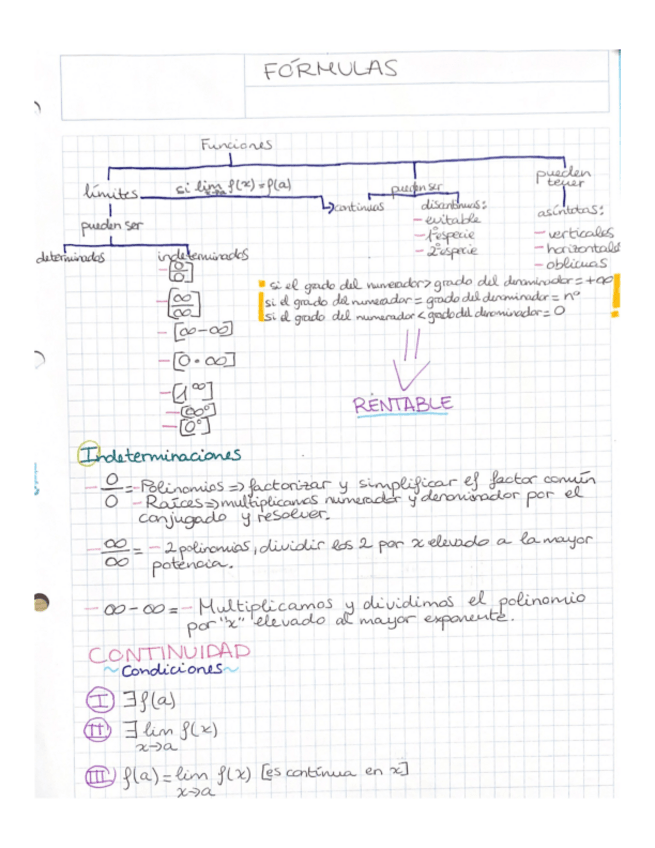 FÓRMULAS
Funciones
límites
si lim f(x) = f(a)
x→a
continuas
pueden ser
discontinuas:
- evitable
- 1ªespecie
- 2ªespecie
pueden
tener
asíntotas:
- verticales
- horizontales
- oblicuas
pueden ser
determinados
indeterminados
- [0/0]
- [∞/∞]
- [∞-∞]
- [0·∞]
- [1^∞]
- [∞⁰]
- [0⁰]
si el grado del numerador > grado del denominador = +∞
si el grado del numerador = grado del denominador = nº
si el grado del numerador < grado del denominador = 0
RENTABLE
Indeterminaciones
- 0/0 = - Polinomios => factorizar y simplificar el factor común
- Raíces => multiplicamos numerador y denominador por el
conjugado y resolver.
- ∞/∞ = - 2 polinomios, dividir los 2 por x elevado a la mayor
potencia.
- ∞-∞ = - Multiplicamos y dividimos el polinomio
por "x" elevado al mayor exponente.
CONTINUIDAD
~Condiciones~
I ∃f(a)
II ∃ lim f(x)
x→a
III f(a) = lim f(x) [es contínua en x]
x→a